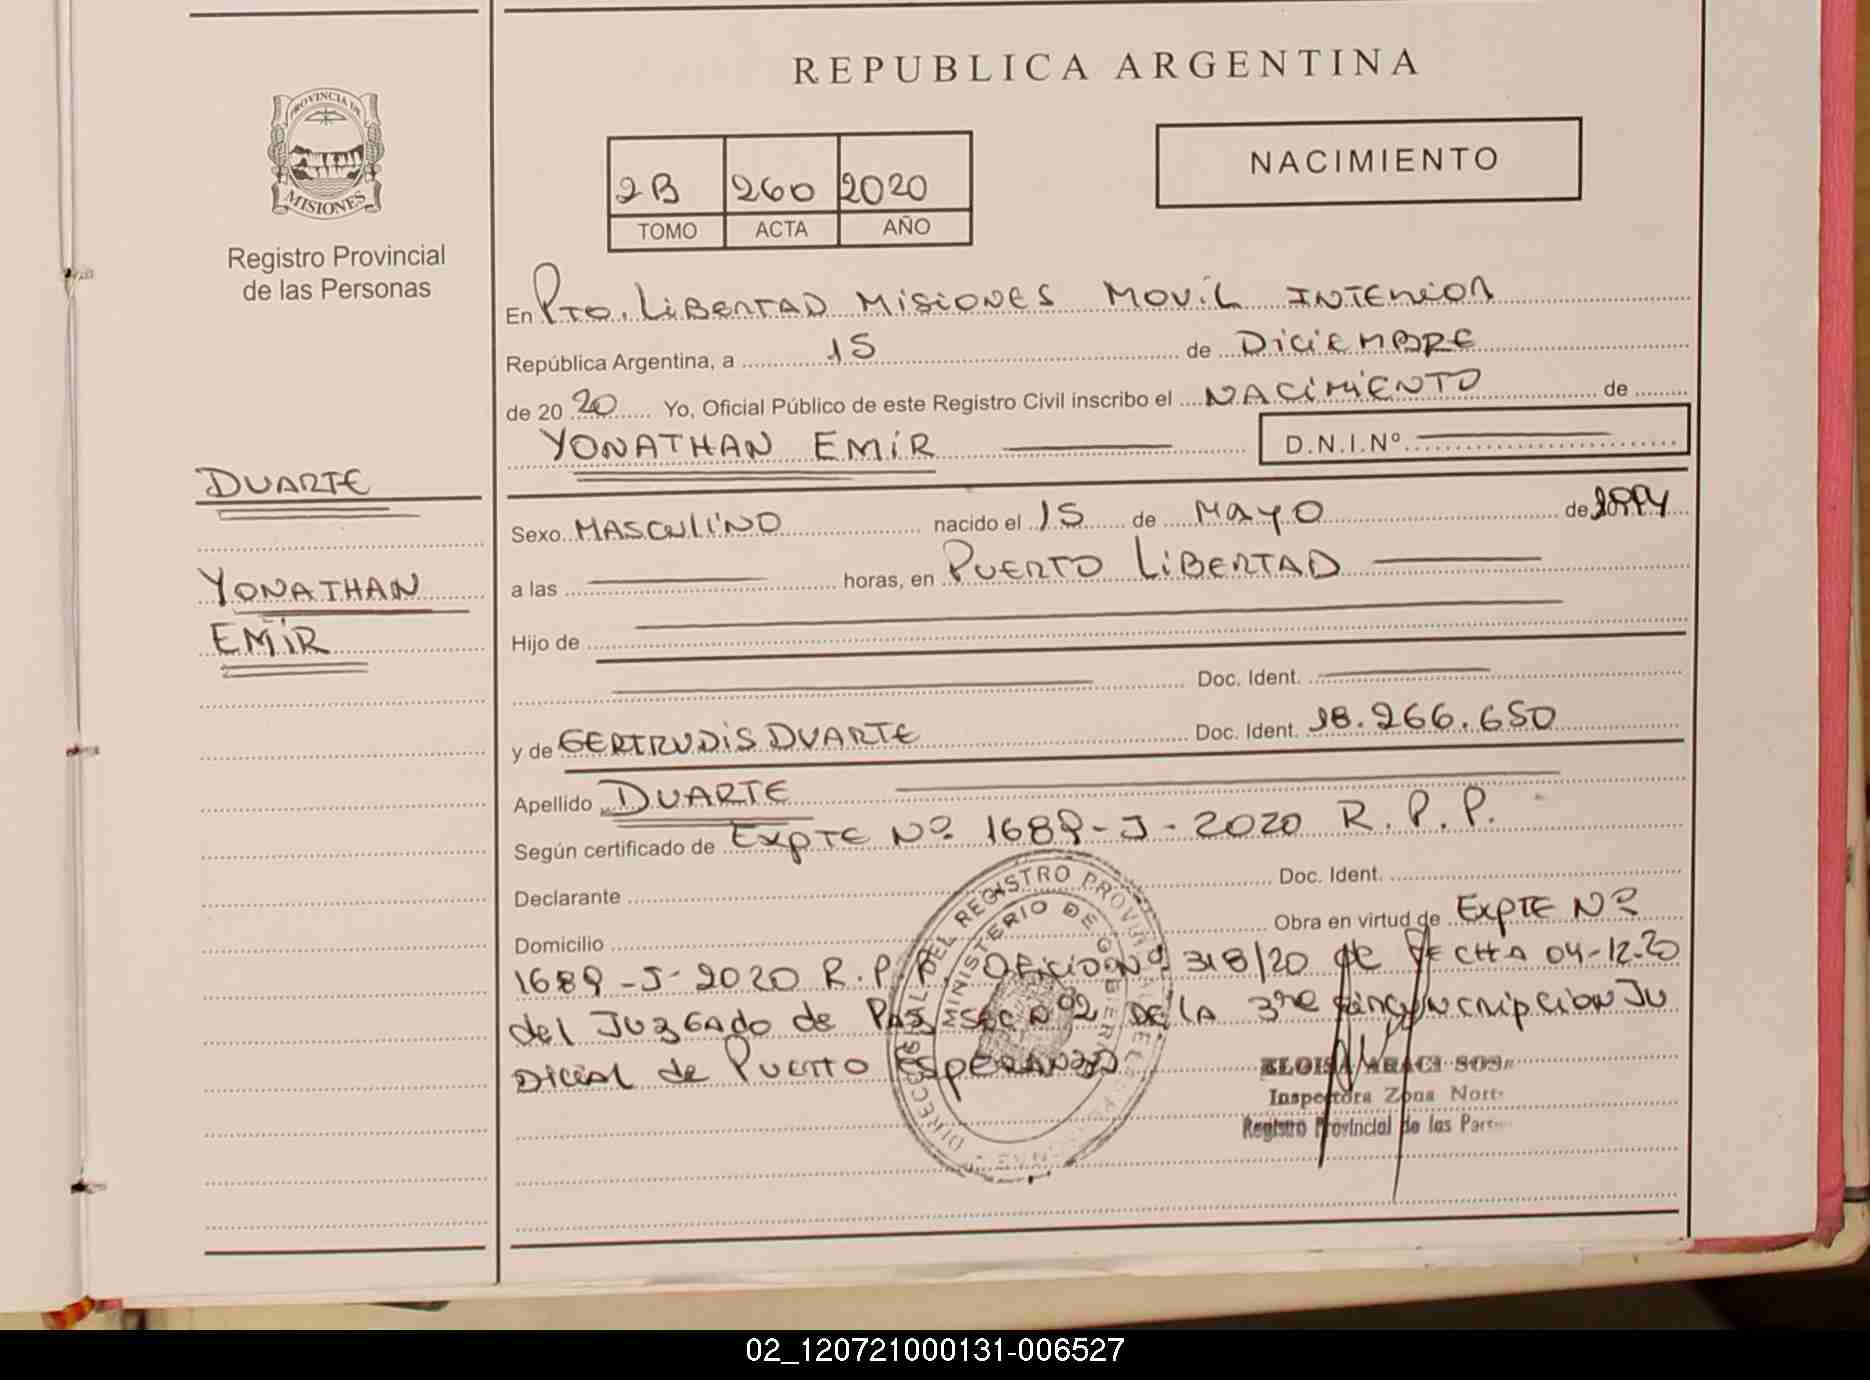 REPUBLICA ARGENTINA
PROVINCIA DE
MISIONES
Registro Provincial
de las Personas
NACIMIENTO
2B 260 2020
TOMO ACTA AÑO
En Pto. LiBERTAD MisiONES MOViL INTERiOR
República Argentina, a 15 de DiCiEMBRE
de 2020 Yo, Oficial Público de este Registro Civil inscribo el NACiMiENTO de
YONATHAN EMiR D.N.I.Nº
DUARTE
YONATHAN
EMiR
Sexo MASCULiNO nacido el 15 de MAYO de
a las horas, en PUERTO LiBERTAD
Hijo de
Doc. Ident.
y de GERTRUDiS DUARTE Doc. Ident. 18.266.650
Apellido DUARTE
Según certificado de ExpTE Nº 1689-J-2020 R.P.P.
Declarante Doc. Ident.
Domicilio Obra en virtud de ExpTE Nº
1689-J-2020 R.P.P. OFiCiO Nº 318/20 de FECHA 04-12-20
del JUZGAdo de PAZ SEC Nº2 DE LA 3ra CiRCUNSCRIPCION JU
DiCiAL de PUERTO ESPERANZA
DEL REGISTRO
MINISTERIO DE GOBIERNO
Inspectora Zona Norte
Registro Provincial de las
02_120721000131-006527